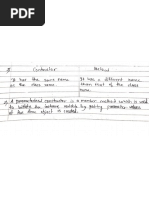 Constructor Method
It has the same name It has a different name
as the class name. than that of the class
name.
A parameterized constructor is a member method which is used
to initialize the instance variables by passing parameter values
at the time object is created.